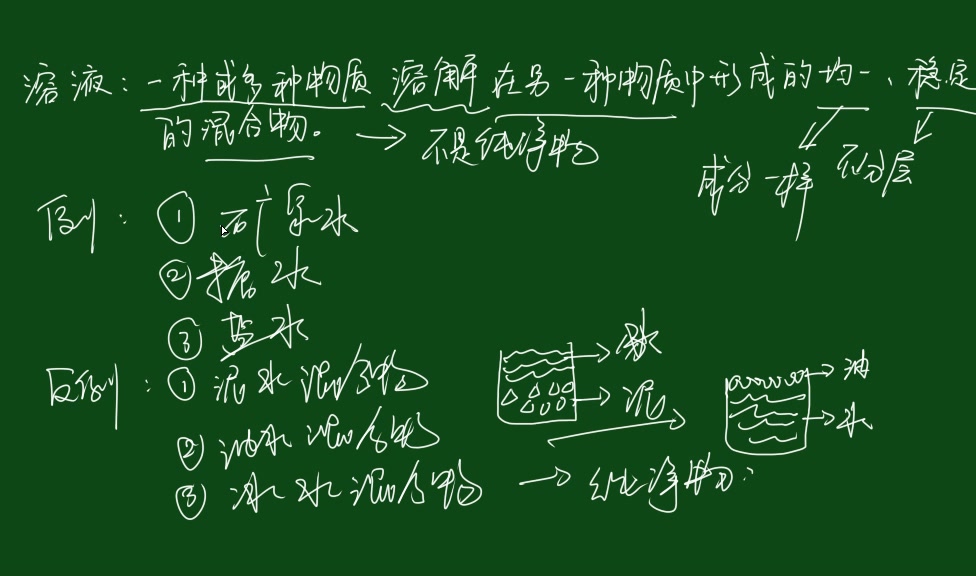 溶液：一种或多种物质溶解在另一种物质中形成的均一、稳定
的混合物。 → 不是纯净物
成分一样 不分层
例：① 矿泉水
② 糖水
③ 盐水
反例：① 泥水混合物
② 油水混合物
③ 冰水混合物 → 纯净物
水
泥
油
水